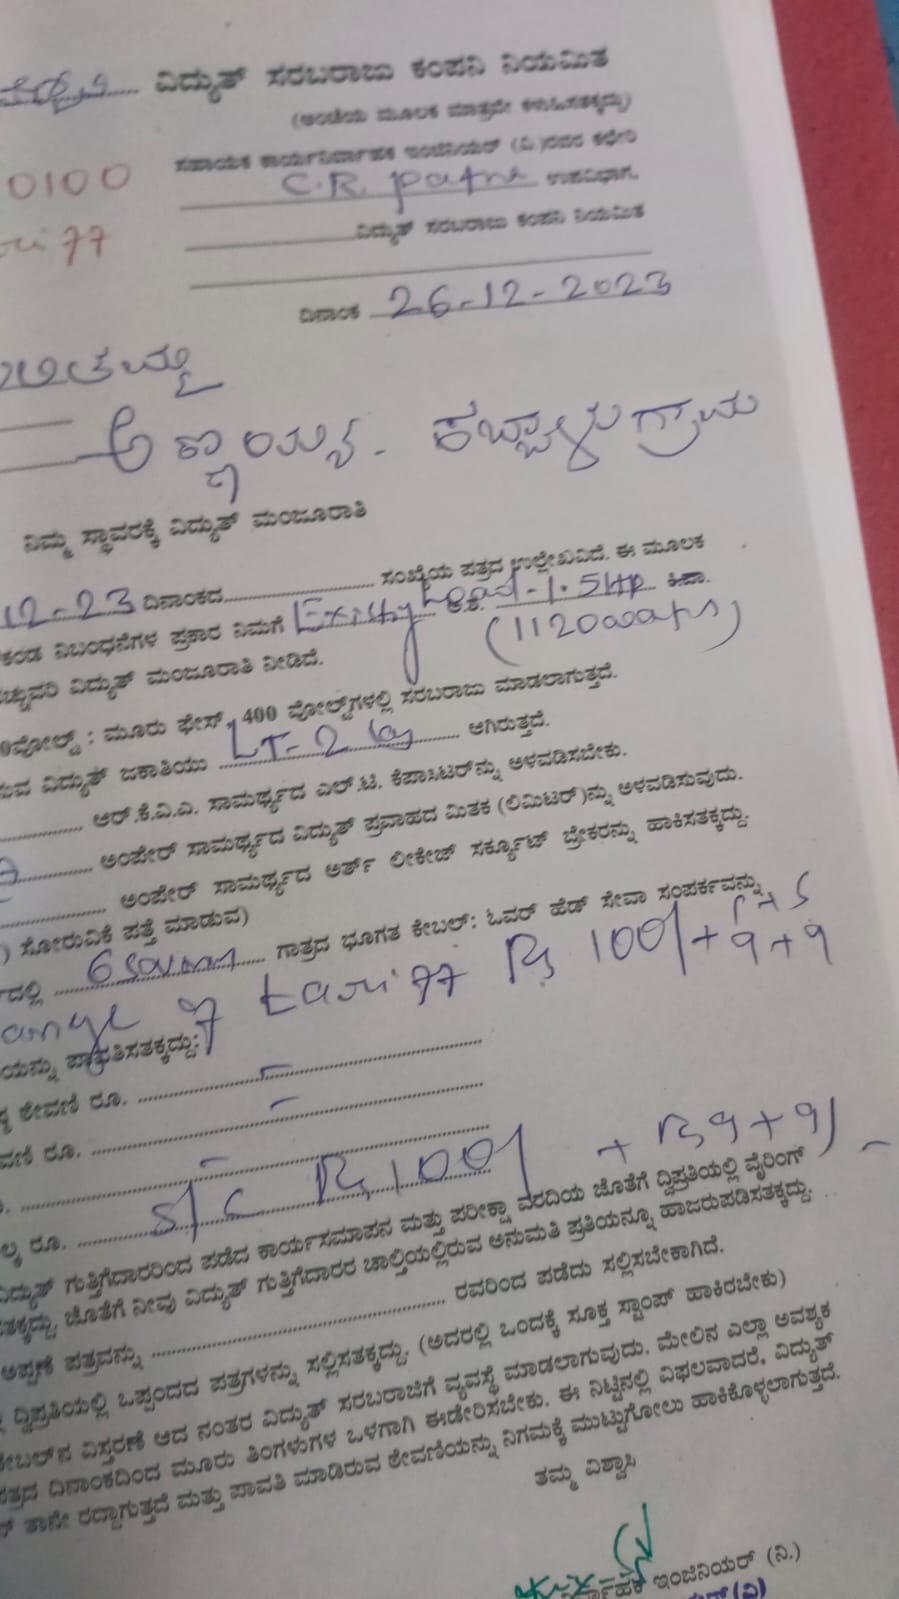 ವಿದ್ಯುತ್ ಸರಬರಾಜು ಕಂಪನಿ ನಿಯಮಿತ
(ಅಂಚೆಯ ಮೂಲಕ ಮಾತ್ರವೇ ಕಳುಹಿಸತಕ್ಕದ್ದು)
0100 ಸಹಾಯಕ ಕಾರ್ಯನಿರ್ವಾಹಕ ಇಂಜಿನಿಯರ್ (ವಿ)ರವರ ಕಛೇರಿ
C.R. patna ಉಪವಿಭಾಗ,
ವಿದ್ಯುತ್ ಸರಬರಾಜು ಕಂಪನಿ ನಿಯಮಿತ
ದಿನಾಂಕ 26-12-2023
ಗ್ರಾಮ
ನಿಮ್ಮ ಸ್ಥಾವರಕ್ಕೆ ವಿದ್ಯುತ್ ಮಂಜೂರಾತಿ
12-23 ದಿನಾಂಕದ ಸಂಖ್ಯೆಯ ಪತ್ರದ ಉಲ್ಲೇಖವಿದೆ. ಈ ಮೂಲಕ
ಕಂಡ ನಿಬಂಧನೆಗಳ ಪ್ರಕಾರ ನಿಮಗೆ load - 1.5HP ಕಿ.ವಾ.
ವಿದ್ಯುತ್ ಮಂಜೂರಾತಿ ನೀಡಿದೆ. (1120watts)
ವೋಲ್ಟ್ : ಮೂರು ಫೇಸ್, 400 ವೋಲ್ಟ್‌ಗಳಲ್ಲಿ ಸರಬರಾಜು ಮಾಡಲಾಗುತ್ತದೆ.
ವಿದ್ಯುತ್ ಜಕಾತಿಯು LT-2 ಆಗಿರುತ್ತದೆ.
ಆರ್.ಕೆ.ವಿ.ಎ. ಸಾಮರ್ಥ್ಯದ ಎಲ್.ಟಿ. ಕೆಪಾಸಿಟರ್‌ನ್ನು ಅಳವಡಿಸಬೇಕು.
ಅಂಪೇರ್ ಸಾಮರ್ಥ್ಯದ ವಿದ್ಯುತ್ ಪ್ರವಾಹದ ಮಿತಕ (ಲಿಮಿಟರ್)ನ್ನು ಅಳವಡಿಸುವುದು.
ಅಂಪೇರ್ ಸಾಮರ್ಥ್ಯದ ಅರ್ತ್ ಲೀಕೇಜ್ ಸರ್ಕ್ಯೂಟ್ ಬ್ರೇಕರನ್ನು ಹಾಕಿಸತಕ್ಕದ್ದು.
) ಸೋರುವಿಕೆ ಪತ್ತೆ ಮಾಡುವ)
ಗಾತ್ರದ ಭೂಗತ ಕೇಬಲ್: ಓವರ್ ಹೆಡ್ ಸೇವಾ ಸಂಪರ್ಕವನ್ನು
of tariff Rs 100/+ 9+9
ಪಾವತಿಸತಕ್ಕದ್ದು:
ಠೇವಣಿ ರೂ. -
ರೂ. -
-
ರೂ. S/C Rs 100/ + Rs 9+9/-
ವಿದ್ಯುತ್ ಗುತ್ತಿಗೆದಾರರಿಂದ ಪಡೆದ ಕಾರ್ಯಸಮಾಪನ ಮತ್ತು ಪರೀಕ್ಷಾ ವರದಿಯ ಜೊತೆಗೆ ದ್ವಿಪ್ರತಿಯಲ್ಲಿ ವೈರಿಂಗ್
ಜೊತೆಗೆ ನೀವು ವಿದ್ಯುತ್ ಗುತ್ತಿಗೆದಾರರ ಚಾಲ್ತಿಯಲ್ಲಿರುವ ಅನುಮತಿ ಪ್ರತಿಯನ್ನೂ ಹಾಜರುಪಡಿಸತಕ್ಕದ್ದು.
ಅಪ್ಪಣೆ ಪತ್ರವನ್ನು ರವರಿಂದ ಪಡೆದು ಸಲ್ಲಿಸಬೇಕಾಗಿದೆ.
ದ್ವಿಪ್ರತಿಯಲ್ಲಿ ಒಪ್ಪಂದದ ಪತ್ರಗಳನ್ನು ಸಲ್ಲಿಸತಕ್ಕದ್ದು. (ಅದರಲ್ಲಿ ಒಂದಕ್ಕೆ ಸೂಕ್ತ ಸ್ಟಾಂಪ್ ಹಾಕಿರಬೇಕು)
ವಿಸ್ತರಣೆ ಆದ ನಂತರ ವಿದ್ಯುತ್ ಸರಬರಾಜಿಗೆ ವ್ಯವಸ್ಥೆ ಮಾಡಲಾಗುವುದು. ಮೇಲಿನ ಎಲ್ಲಾ ಅವಶ್ಯಕ
ದಿನಾಂಕದಿಂದ ಮೂರು ತಿಂಗಳುಗಳ ಒಳಗಾಗಿ ಈಡೇರಿಸಬೇಕು. ಈ ನಿಟ್ಟಿನಲ್ಲಿ ವಿಫಲವಾದರೆ, ವಿದ್ಯುತ್
ತಾನೇ ರದ್ದಾಗುತ್ತದೆ ಮತ್ತು ಪಾವತಿ ಮಾಡಿರುವ ಠೇವಣಿಯನ್ನು ನಿಗಮಕ್ಕೆ ಮುಟ್ಟುಗೋಲು ಹಾಕಿಕೊಳ್ಳಲಾಗುತ್ತದೆ.
ತಮ್ಮ ವಿಶ್ವಾಸಿ
ಇಂಜಿನಿಯರ್ (ನಿ.)